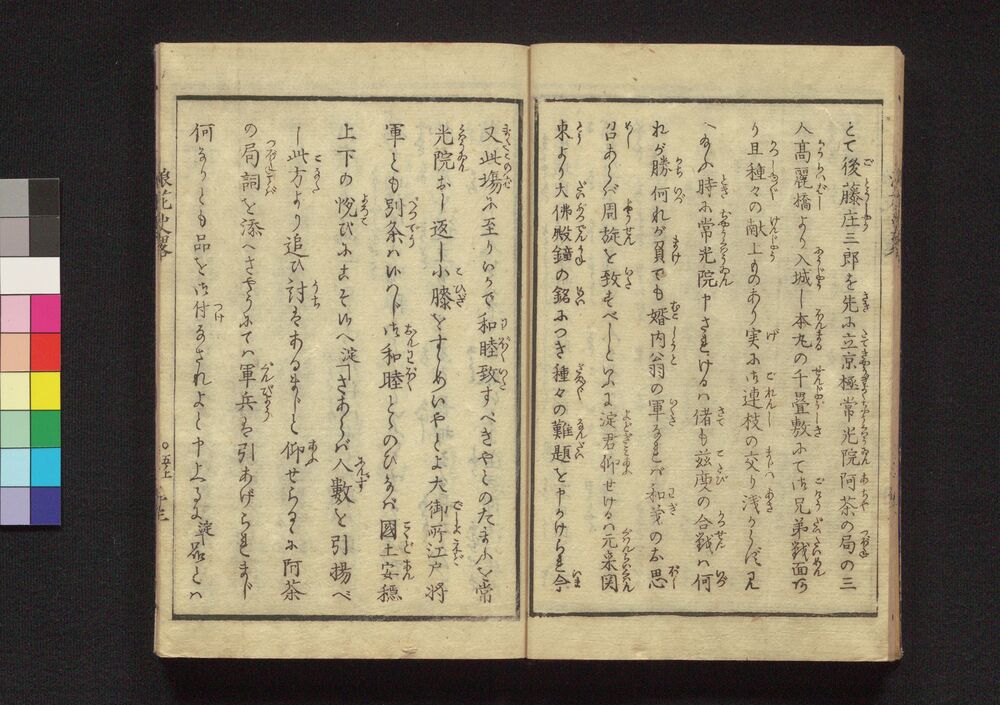 とて後藤庄三郎を先に立京極常光院阿茶の局の三
人高麗橋より入城し本丸の千畳敷にて御兄弟対面あ
り且種々の献上ものあり実に御連枝の交り浅からず見
へたり時に常光院申されけるハ偖も茲度の合戦ハ何
れが勝何れが負でも婿内翁の軍なれバ和義の御思
召あらバ周旋を致すべしといふに淀君仰せけるハ元来関
東より大佛殿鐘の銘につき種々の難題を申かけられ今
又此場に至りいかで和睦致すべきやとのたまふを常
光院おし返し小膝をすゝめいやとよ大御所江戸将
軍とも別条ハいハじ御和睦とゝのひなバ國土安穏
上下の悦びにこそ候へ淀「さあらバ人数を引揚べ
し此方より追ひ討ハあるまじと仰せらるゝに阿茶
の局詞を添へさやうにてハ軍兵は引あげられまじ
何なりとも品を御付なされよと申上るに淀「品とハ
浪花史略
五上